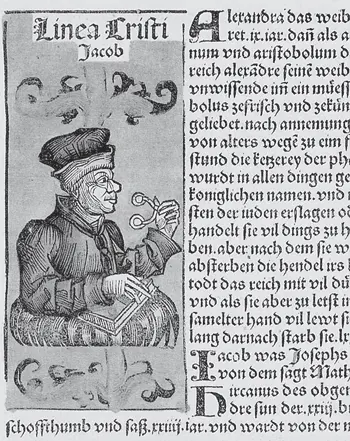 Linea Cristi
Jacob
Alexandra das weib
ret.ix.iar.dañ als a
num vnd aristobolum d
reich alexādre seinē weib
vnwissende
bolus zefrisch vnd zekün
geliebet.nach annemung
von alters wegē zu eim f
stund die ketzerey der ph
wurdt in allen dingen ge
koniglichen namen.vnd
sten der iuden erslagen od
handelt sie vil dings zu h
ben.aber nach dem sie w
absterben die hendel irs
todt das reich mit vil dü
vnd als sie aber zu letst i
samelter hand vil lewt si
lang darnach starb sie.lx
Iacob was Josephs
von dem sagt Math
Hircanus des obge
dre sun der.xxiij.b
schoffthumb vnd saß.xxiiij.iar.vnd wardt von der m